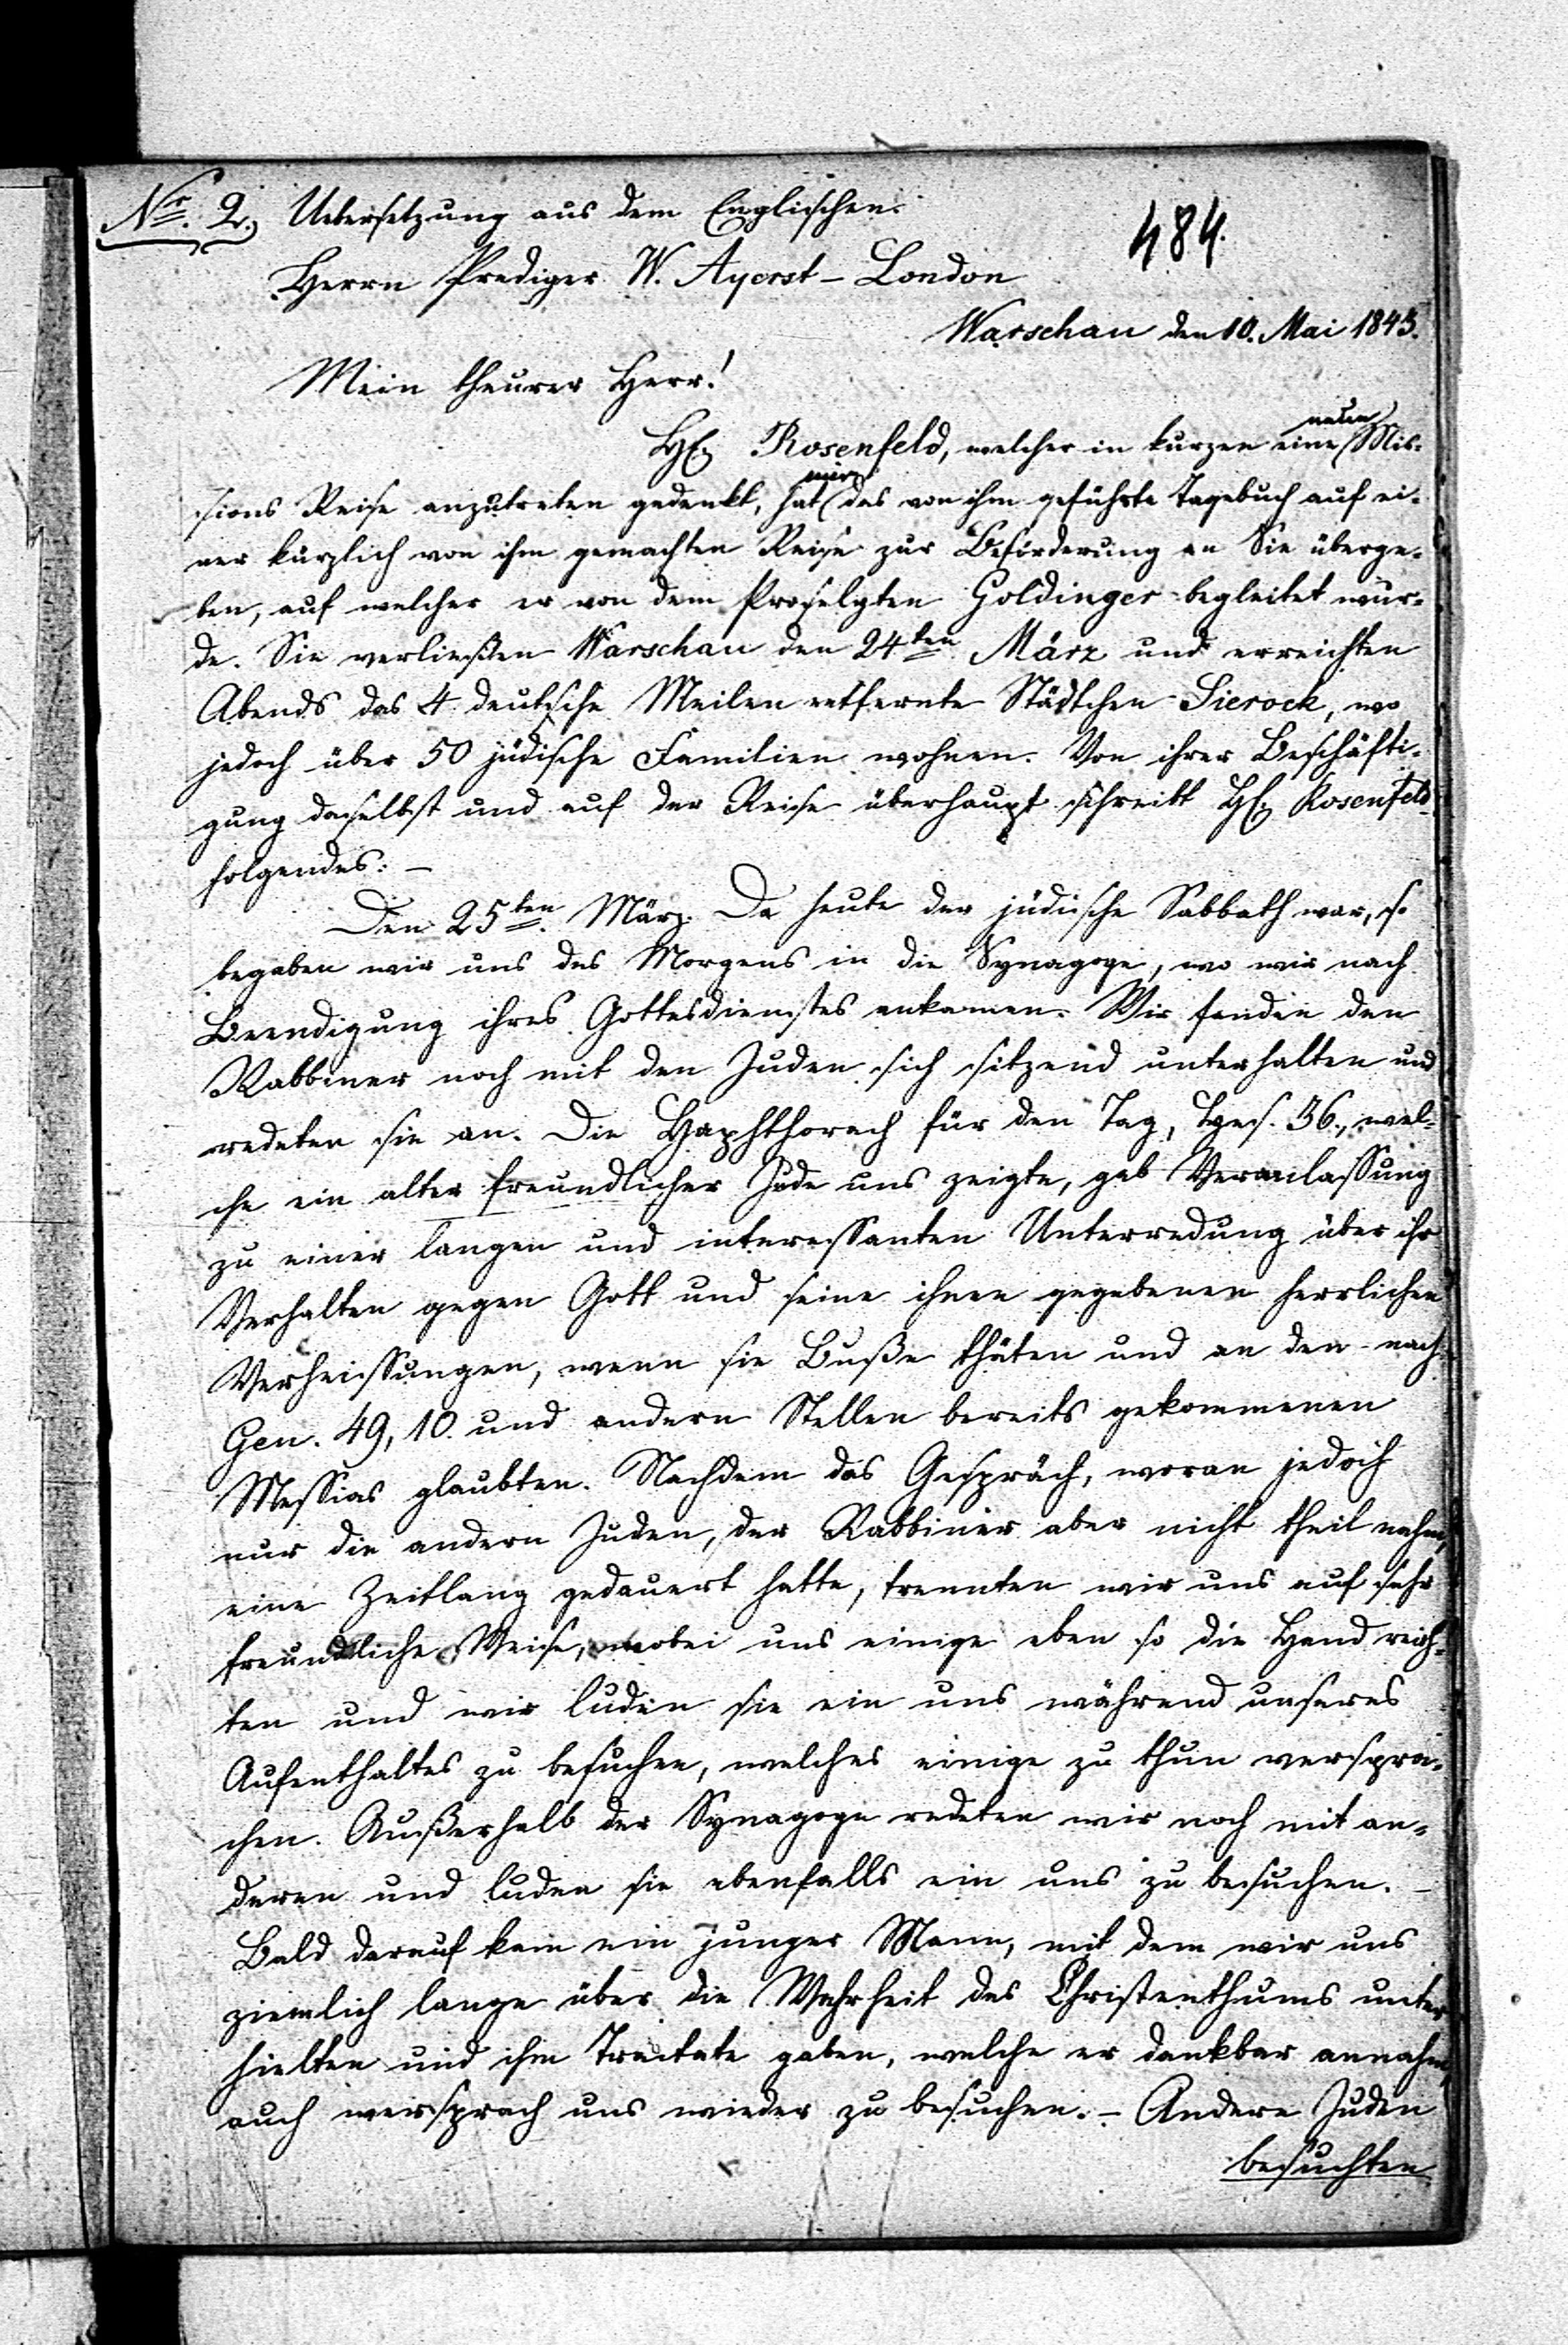 Nr. 2. Uebersetzung aus dem Englischen.
484.
Herrn Prediger W. Ayerst – London
Warschau den 10. Mai 1843.
Mein theurer Herr!
neue
H. Rosenfeld, welcher in kurzen eine Mis-
mir
sions Reise anzutreten gedenkt, hat das von ihm geführte Tagebuch auf ei-
ner kürzlich von ihm gemachten Reise zur Beförderung an Sie überge-
ben, auf welcher er von dem Proselyten Goldinger begleitet wur-
de. Sie verließen Warschau den 24ten März und erreichten
Abends das 4 deutsche Meilen entfernte Städtchen Sierock, wo
jedoch über 50 jüdische Familien wohnen. Von ihrer Beschäfti-
gung daselbst und auf der Reise überhaupt schreibt H. Rosenfeld
folgendes: –
Den 25ten März. Da heute der jüdische Sabbath war, so
begaben wir uns des Morgens in die Synagoge, wo wir nach
Beendigung ihres Gottesdienstes ankamen. Wir fanden den
Rabbiner noch mit den Juden sich sitzend unterhalten und
redeten sie an. Die Haphthorach für den Tag, 36., wel-
che ein alter freundlicher Jude uns zeigte, gab Veranlassung
zu einer langen und interessanten Unterredung über ihr
Verhalten gegen Gott und seine ihnen gegebenen herrlichen
Verheissungen, wenn sie Buße thäten und an den nach
Gen. 49, 10. und andern Stellen bereits gekommenen
Messias glaubten. Nachdem das Gespräch, woran jedoch
nur die andern Juden, der Rabbiner aber nicht theil nahm,
eine Zeitlang gedauert hatte, trennten wir uns auf sehr
freundliche Weise, wobei uns einige eben so die Hand reich-
ten und wir luden sie ein uns während unseres
Aufenthaltes zu besuchen, welches einige zu thun verspra-
chen. Außerhalb der Synagoge redeten wir noch mit an-
deren und luden sie ebenfalls ein uns zu besuchen. –
Bald darauf kam ein junger Mann, mit dem wir uns
ziemlich lange über die Wahrheit des Christenthums unter-
hielten und ihm Tractate gaben, welche er dankbar annahm,
auch versprach uns wieder zu besuchen. – Andere Juden
besuchten